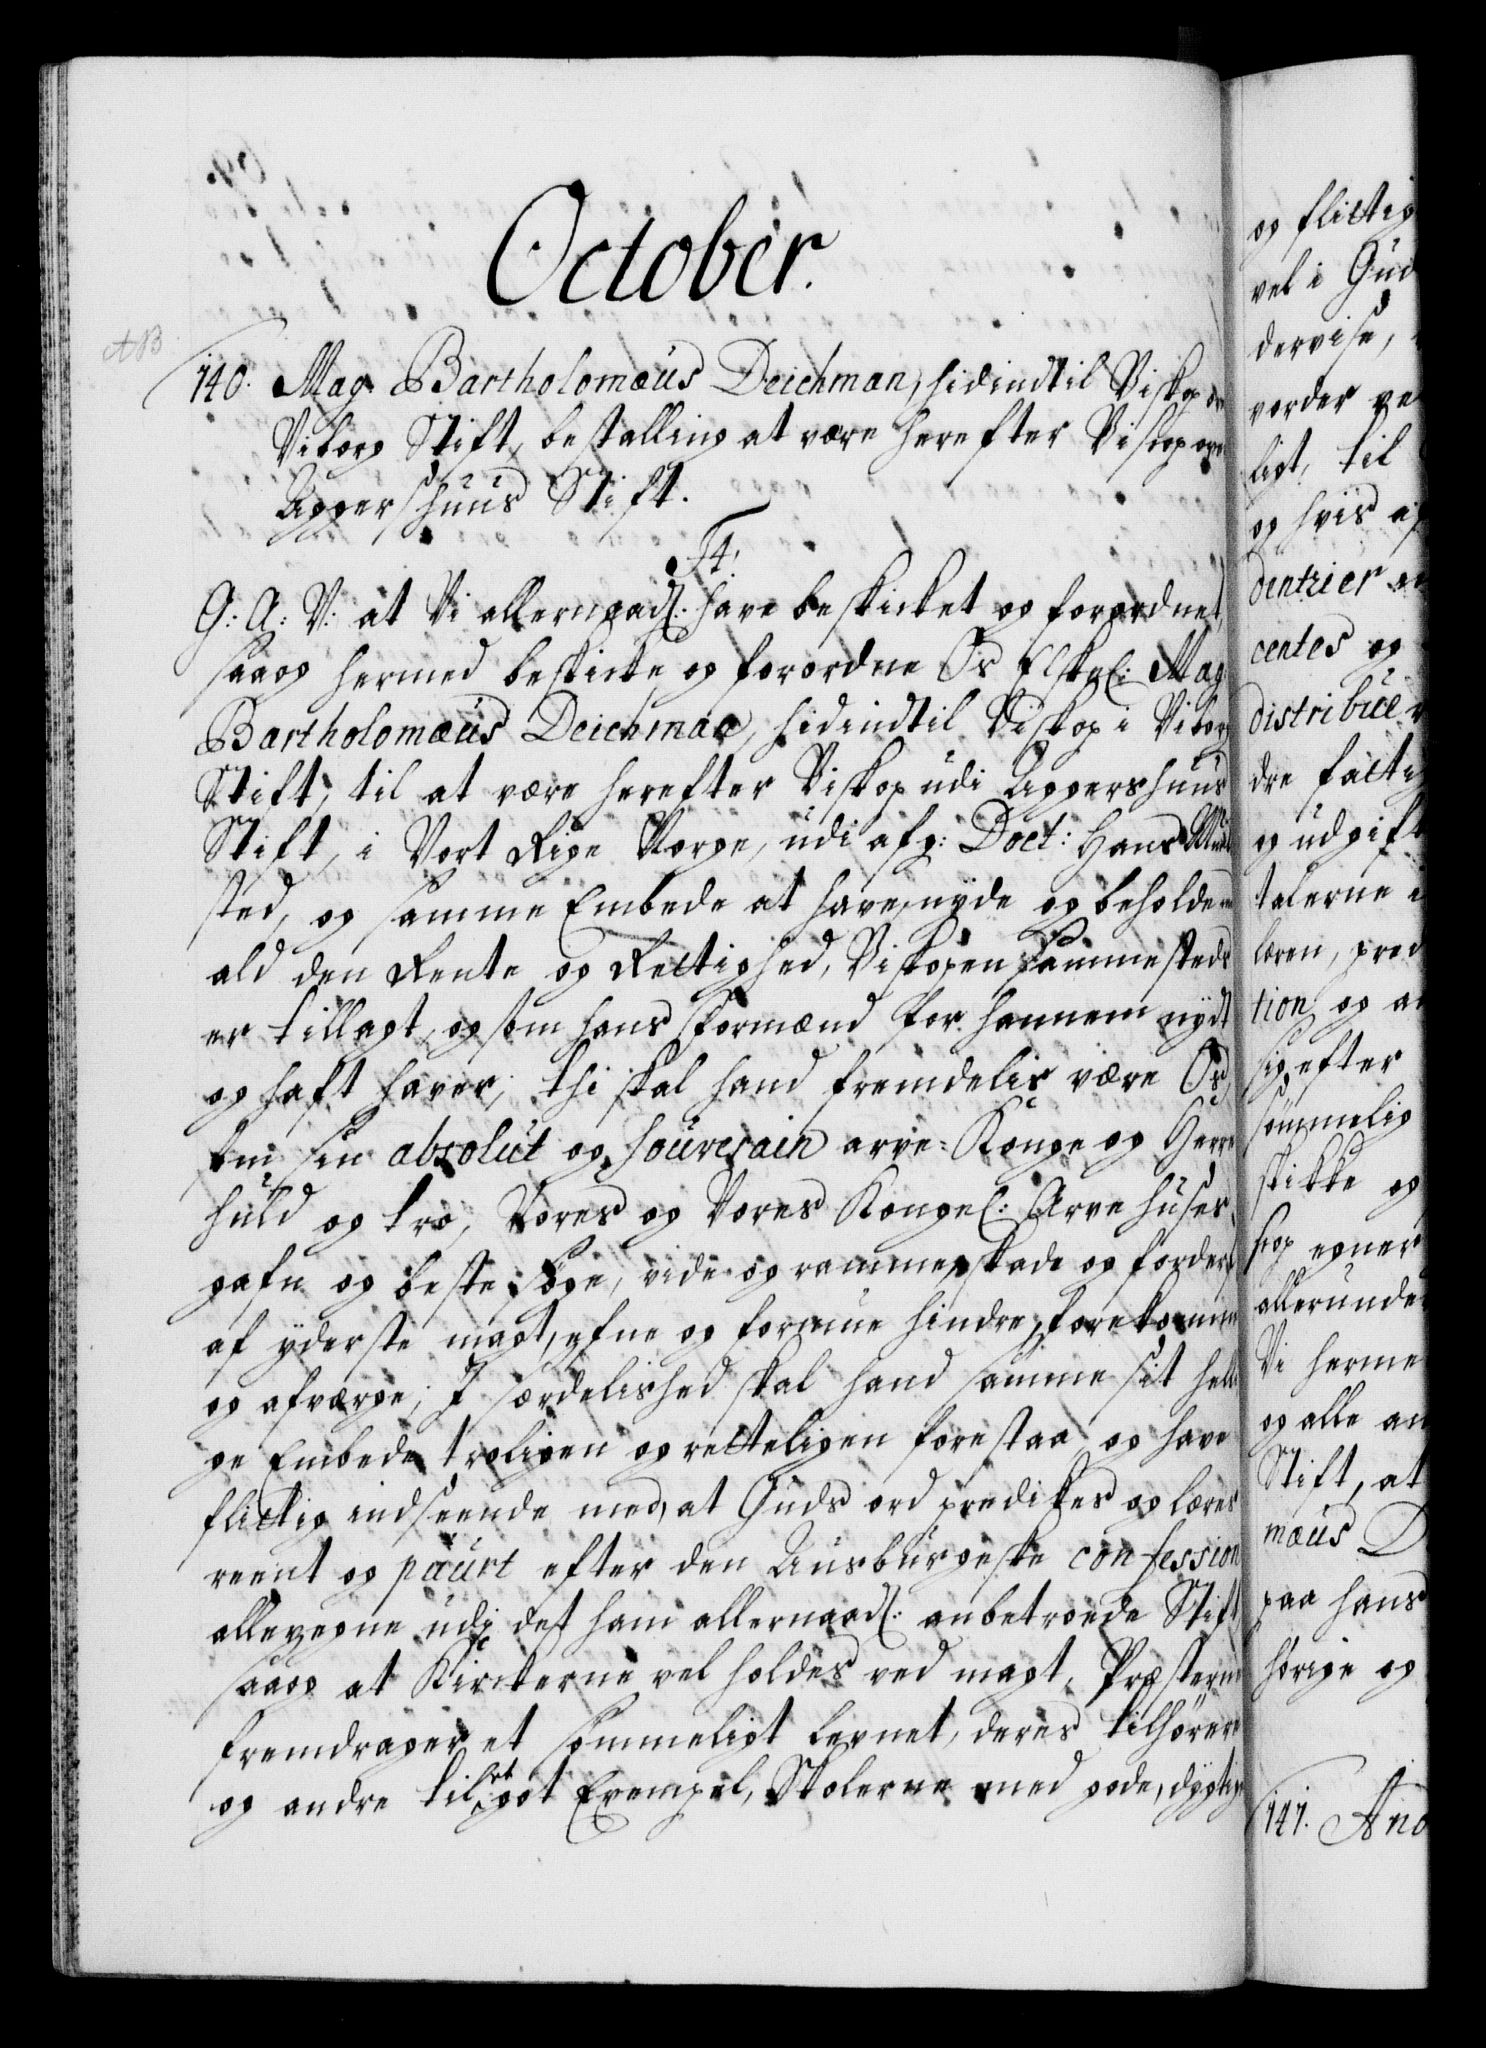 October.
AB
140. Mag. Bartholomæus Deichman, hidindtil Biskop over
Viborg Stift, bestalling at være herefter Biskop over
Aggershuus Stift.
F4.
G: A: V: at Vi allernaadl: have beskicket og forordnet,
saaog hermed beskicke og forordne Os Elskel: Mag
Bartholomæus Deichman, hidindtil Biskop i Viborg
Stift, til at være herefter Biskop udi Aggershuus
Stift, i Vort Rige Norge, udi afg: Doct: Hans
sted, og samme Embede at have, nyde og beholde med
ald den Rente og Rettighed, Biskopen sammesteds
er tillagt, og som hans Formænd for hannem nydt
og haft haver, thi skal hand fremdelis være Os,
som sin absolut og souverain arve-Konge og Herre
huld og tro, Vores og Vores Kongel: Arve Huses
gafn og beste søge, vide og ramme, skade og forderf
af yderste magt, efne og formue hindre, forekomme
og afværge; I særdelished skal hand samme sit helli-
ge Embede troligen og retteligen forestaa og have
flittig indseende med, at Guds ord predikes og læres
reent og puurt efter den Ausburgeske confession
allevegne udi det ham allernaadl: anbetroede Stift
saaog at Kirckerne vel holdes ved magt, Præsterne
fremdrager et sømmeligt levnet, deres tilhørere
og andre til et got Exempel, Skolerne med gode, dygtige
og flittig
vel i Gud
dervise,
vorder
ligt, til
og hvis
dentzier
centes og
distribue
dre fatti
og udgift
talerne i
læren, pred
tion og an
sig efter
sømmelig
skikke og
skop egner
allerunder
Vi herme
og alle an
Stift, at
mæus D
paa hans
hørige og
141. And